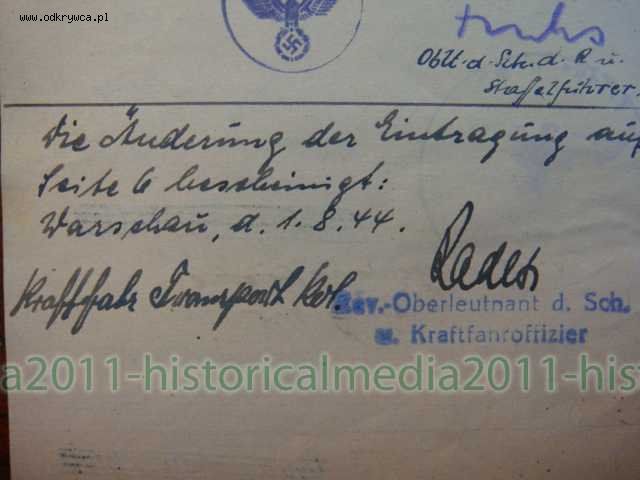 www.odkrywca.pl
Oblt. d. Sch. d. R u.
Staffelführer.
Die Änderung der Eintragung auf
Seite 6 bescheinigt:
Warschau, d. 1.8.44.
Kraftfahr Transport Kol.
Rev.-Oberleutnant d. Sch.
u. Kraftfahroffizier
a2011-historicalmedia2011-his